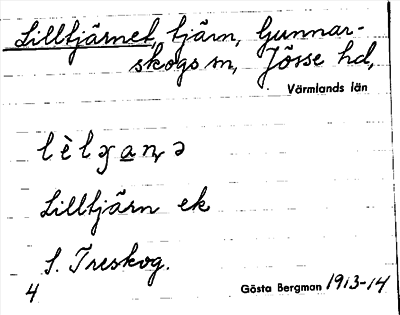 Lilltjärnet, tjärn, Gunnar-
skogs sn, Jösse hd,
Värmlands län
Lilltjärn ek
S. Treskog.
4
Gösta Bergman 1913-14